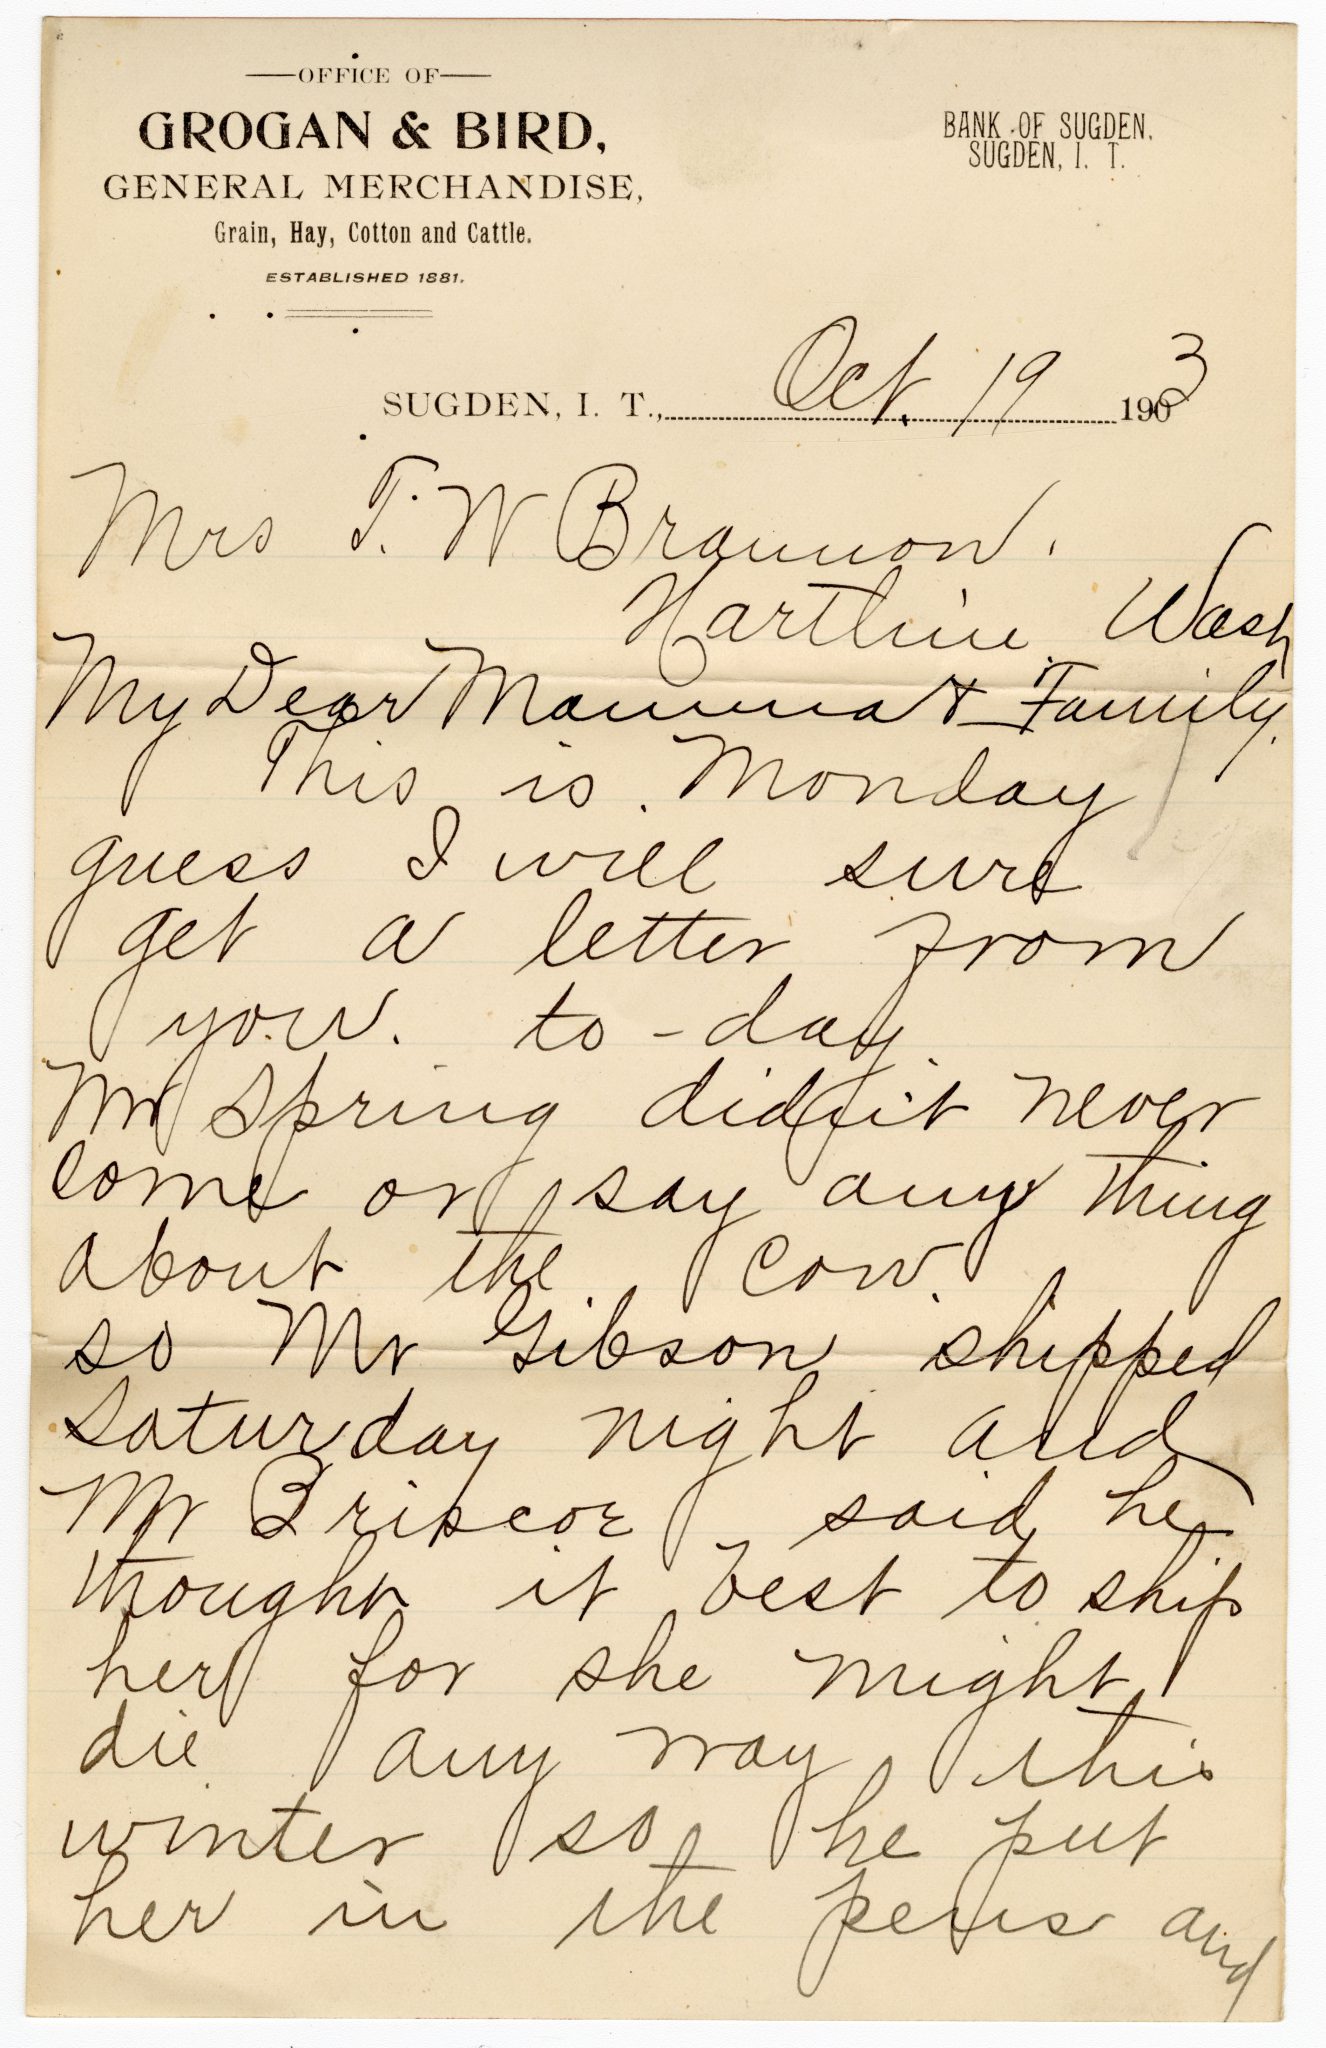 OFFICE OF
GROGAN & BIRD,
GENERAL MERCHANDISE,
Grain, Hay, Cotton and Cattle.
ESTABLISHED 1881.
BANK OF SUGDEN.
SUGDEN, I. T.
SUGDEN, I. T., Oct. 19 1903
Mrs T. W Brannon.
Hartline Wash
My Dear Mamma & Family.
This is Monday
guess I will sure
get a letter from
you. to-day
Mr Spring didn't never
come or say any thing
about the cow.
so Mr Gibson shipped
Saturday night and
Mr Briscoe said he
thought it best to ship
her for she might
die any way this
winter so he put
her in the pens and